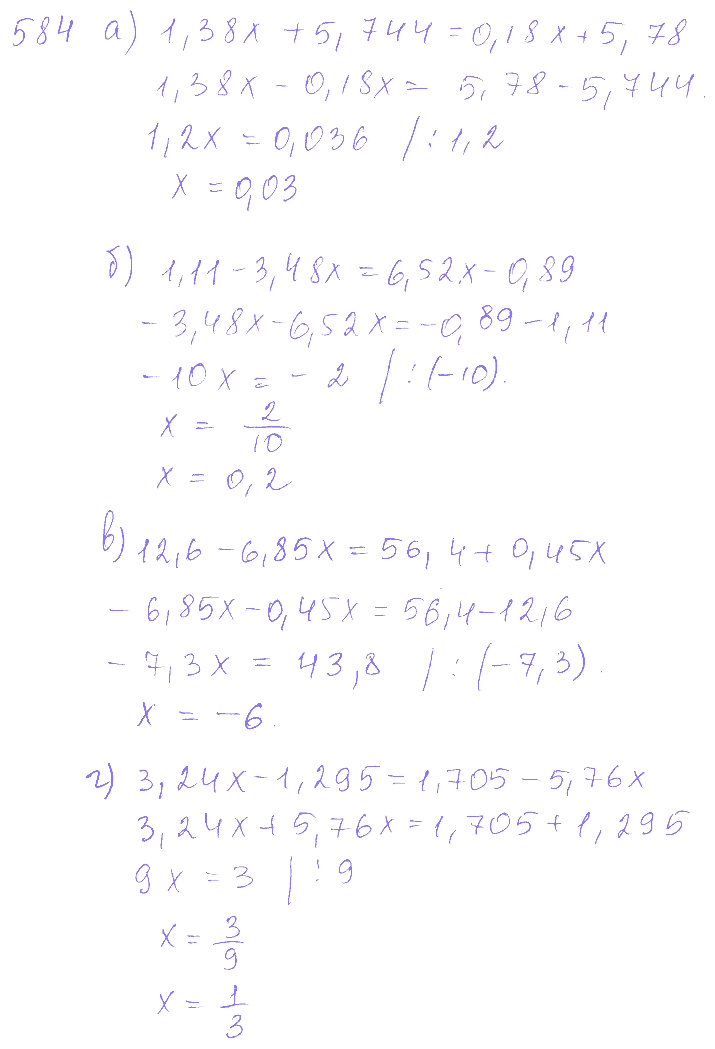 584 а) 1,38x + 5,744 = 0,18x + 5,78
1,38x - 0,18x = 5,78 - 5,744.
1,2x = 0,036 /:1,2
x = 0,03
б) 1,11 - 3,48x = 6,52x - 0,89
- 3,48x - 6,52x = -0,89 - 1,11
- 10x = - 2 /:(-10).
x = 2/10
x = 0,2
в) 12,6 - 6,85x = 56,4 + 0,45x
- 6,85x - 0,45x = 56,4 - 12,6
- 7,3x = 43,8 /:(-7,3).
x = -6.
г) 3,24x - 1,295 = 1,705 - 5,76x
3,24x + 5,76x = 1,705 + 1,295
9x = 3 |:9
x = 3/9
x = 1/3